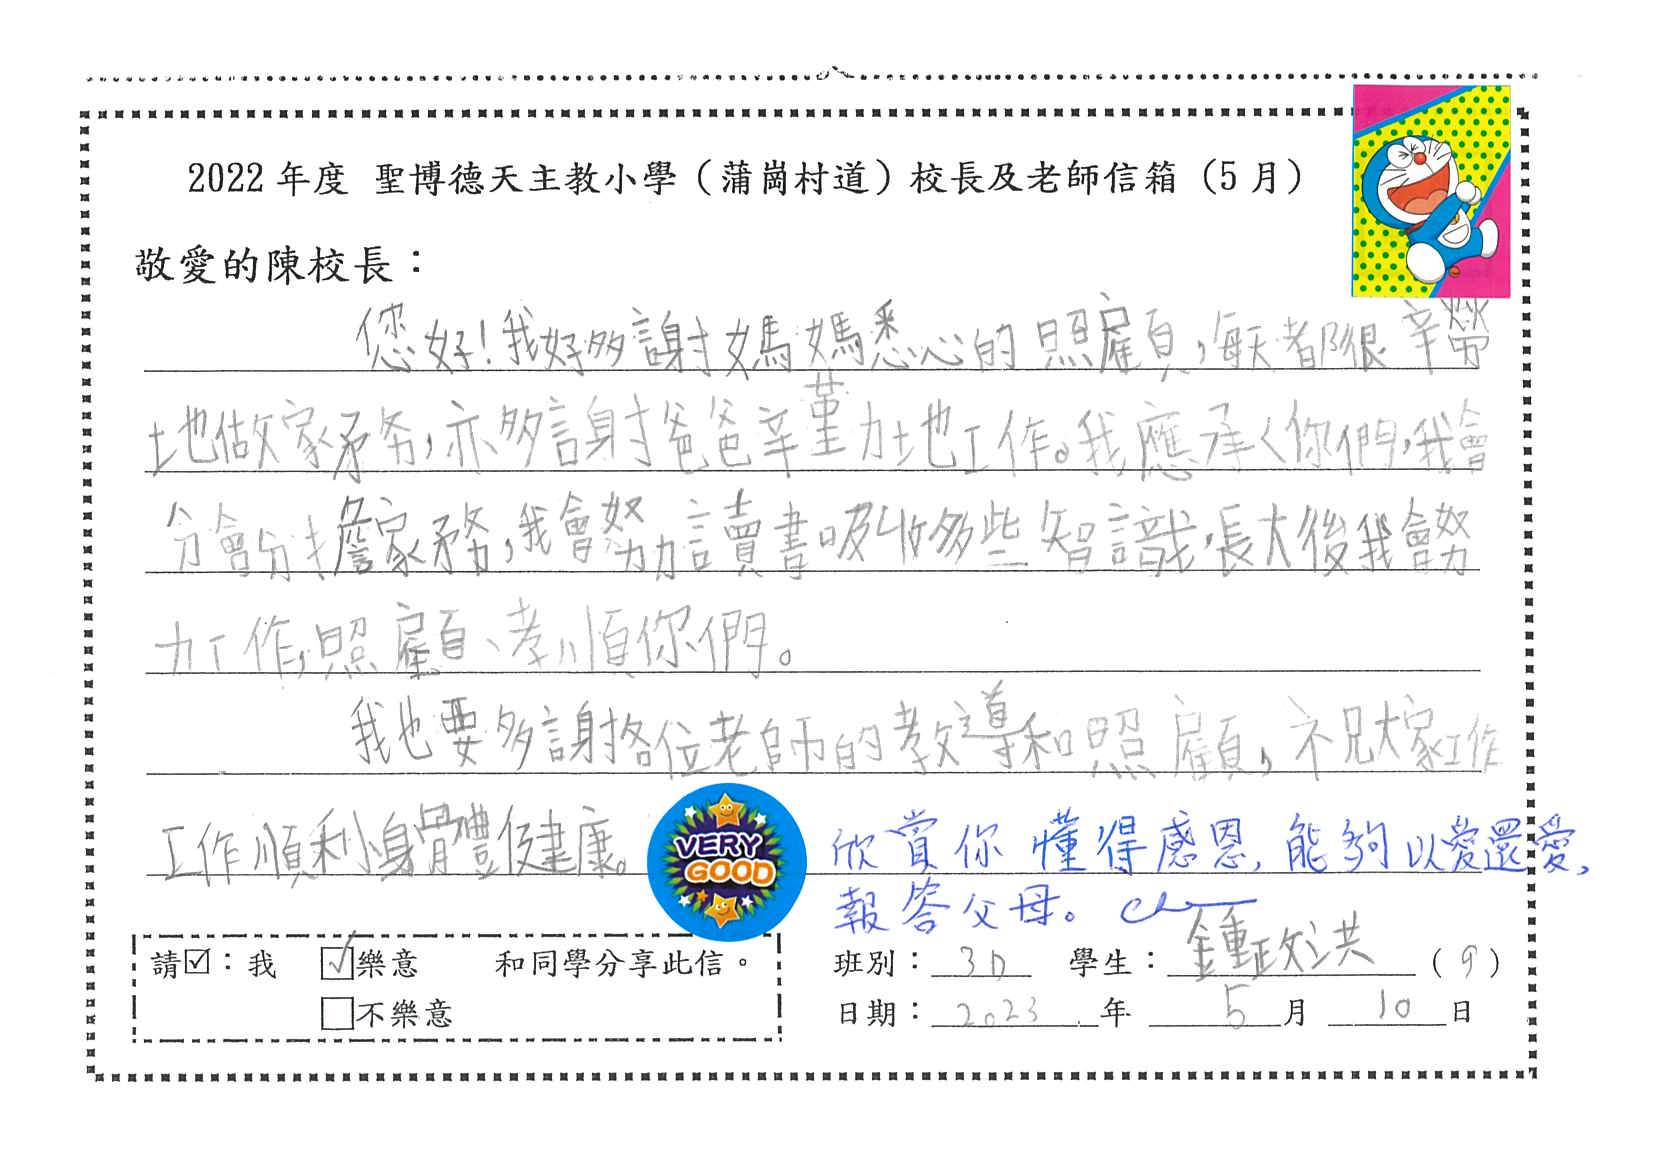 2022 年度 聖博德天主教小學（蒲崗村道）校長及老師信箱（5 月）
敬愛的陳校長：
您好！我好多謝媽媽悉心的照顧，每天都很辛勞
地做家務，亦多謝爸爸辛勤地工作。我應承你們，我會
分會分擔家務，我會努力讀書吸收多些智識，長大後我會努
力工作，照顧、孝順你們。
我也要多謝各位老師的教導和照顧，祝大家工作
工作順利身體健康。
VERY
GOOD
欣賞你懂得感恩，能夠以愛還愛，
報答父母。
請☑：我 ☑樂意 和同學分享此信。
□不樂意
班別：3D 學生：鍾政洪（9）
日期：2023 年 5 月 10 日